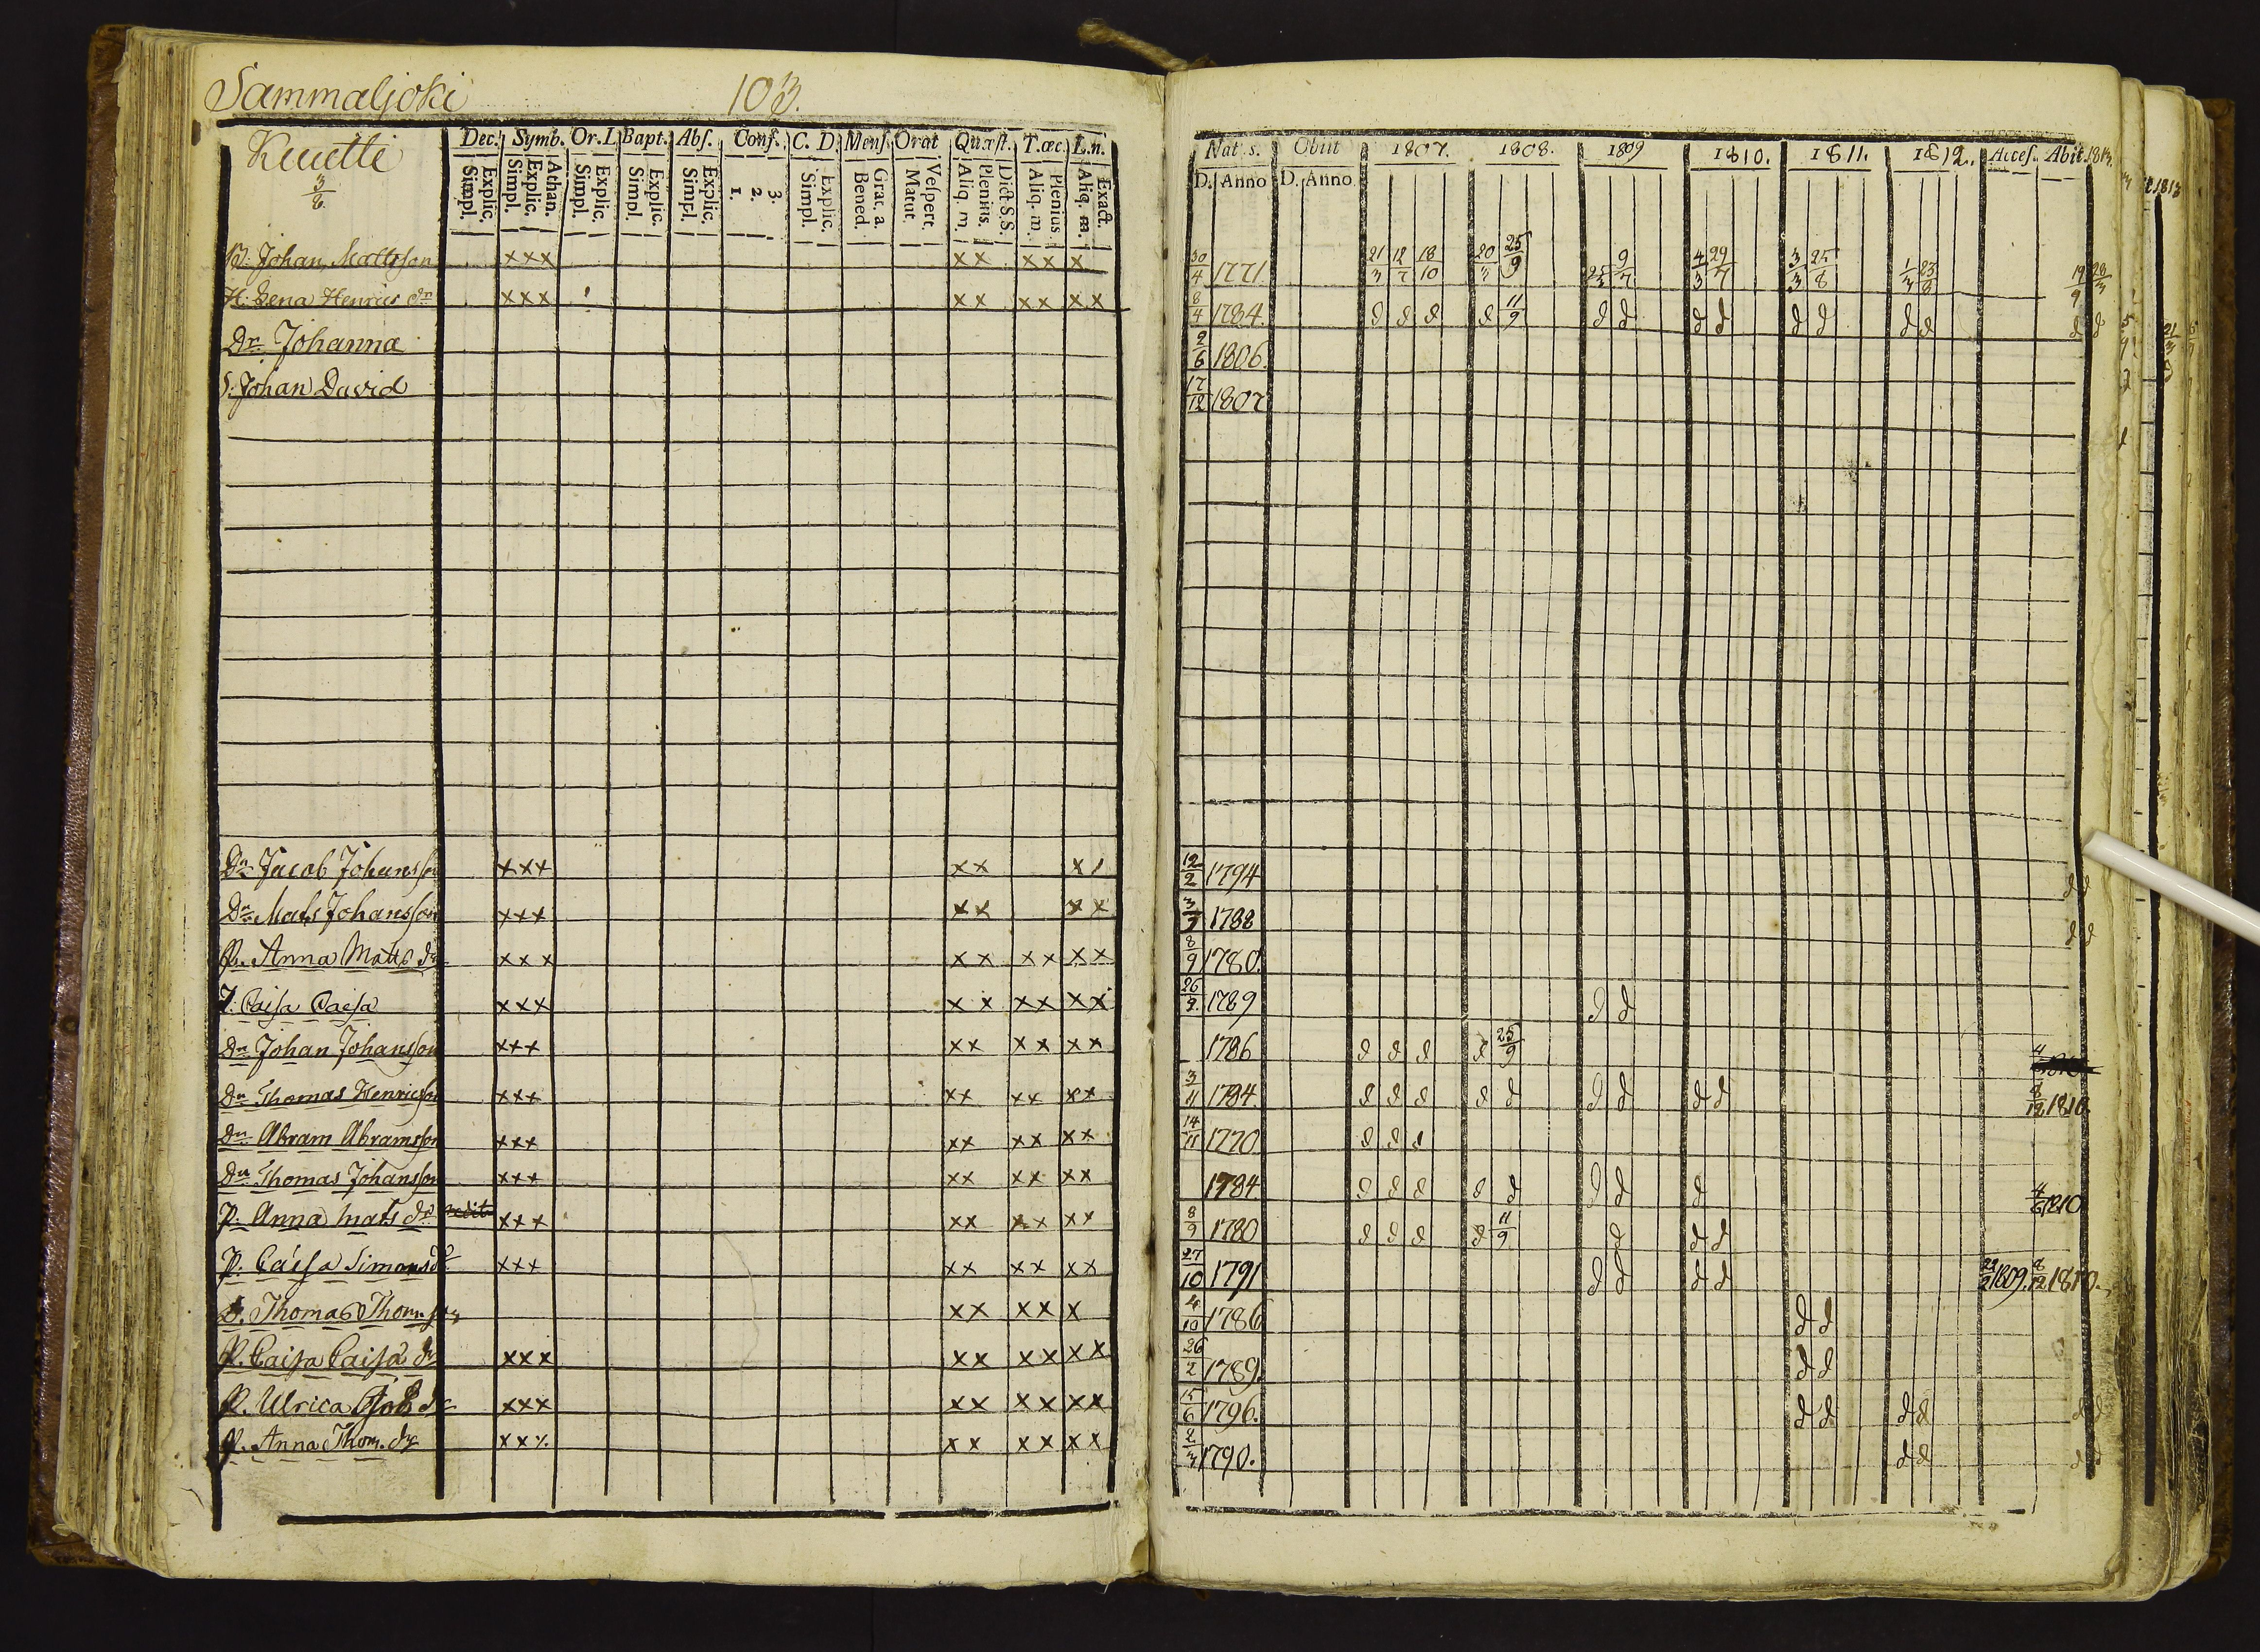 Sammaljoki 103.
Kuuttti 3/8
Dec. Symb. Or.L Bapt. Abſ. Conf. C. D. Menſ. Orat Quæſt. T.œc. L.n.
Explic. Simpl. Athan. Explic. Simpl. Explic. Simpl. Explic. Simpl. Explic. Simpl. 3. 2. 1. Explic. Simpl. Grat. a. Bened. Veſpert. Matut. Dict S.S. Plenius. Aliq. m. Plenius Aliq. m. Exact. Aliq. m.
Nat s. Obiit 1807. 1808. 1809 1810. 1811. 1812. Acceſ. Abit. 1813.
D. Anno D. Anno
B: Johan Mattsson xxx xx xx x 30/4 1771. 21/3 12/7 18/10 20/3 25/9 25/3 9/7 4/3 29/7 3/3 25/8 1/3 23/8 19/9 28/3
H: Lena Henrics dr xxx xx xx xx 8/4 1784. d d d d 11/9 d d d d d d d d d d
Dr Johanna 2/6 1806.
S: Johan David 17/12 1807
Dn Jacob Johansson xxx xx x/ 12/2 1794 d d
Dn Mats Johansson xxx xx xx 3/7 1788 d d
P. Anna Matts dr xxx xx xx xx 8/9 1780.
J. Caisa Caisa xxx xx xx xx 26/2 1789 d d
Dn Johan Johansson xxx xx xx xx 1786 d d d d 25/9
Dn Thomas Henricsson xxx xx xx xx 3/11 1784. d d d d d d d d d 8/12 1810.
Dn Abram Abramsson xxx xx xx xx 14/11 1770 d d d
Dn Thomas Johansson xxx xx xx xx 1784 d d d d d d d d 4/6 1810
P. Anna Mats dr redit xxx xx xx xx 8/9 1780 d d d d 11/9 d d d
P. Caisa Simons dr xxx xx xx xx 27/10 1791 d d d d 22/2 1809. 8/12 1810.
D. Thomas Thomsson xx xx x 4/10 1786 d d
P. Caisa Caisa dr xxx xx xx xx 26/2 1789. d d
P. Ulrica Joh dr xxx xx xx xx 15/6 1796. d d d d d d
P. Anna Thom. dr xxx xx xx xx 2/3 1790. d d d d